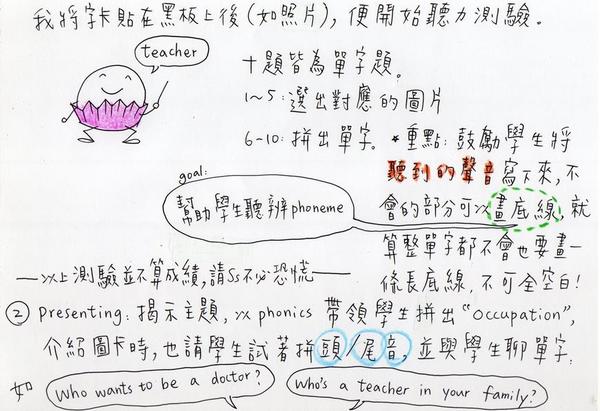 我將字卡貼在黑板上後(如照片),便開始聽力測驗。
teacher
十題皆為單字題。
1~5:選出對應的圖片
6-10:拼出單字。*重點:鼓勵學生將
聽到的聲音寫下來,不
goal:
幫助學生聽辨phoneme
會的部分可以畫底線,就
算整單字都不會也要畫一
條長底線,不可全空白!
——以上測驗並不算成績,請Ss不必恐慌——
② Presenting: 揭示主題,以phonics 帶領學生拼出"Occupation",
介紹圖卡時,也請學生試著拼頭/尾音,並與學生聊單字,
如 Who wants to be a doctor? Who's a teacher in your family?